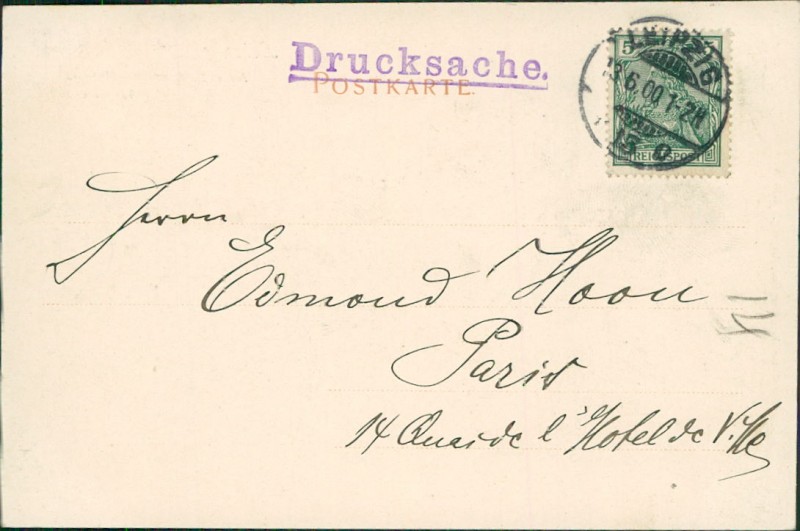 Drucksache.
POSTKARTE
LEIPZIG
6.00.1-2N
5
REICHSPOST
Herrn
Edmond Hoon
Paris
14 Quai de l'Hotel de Ville